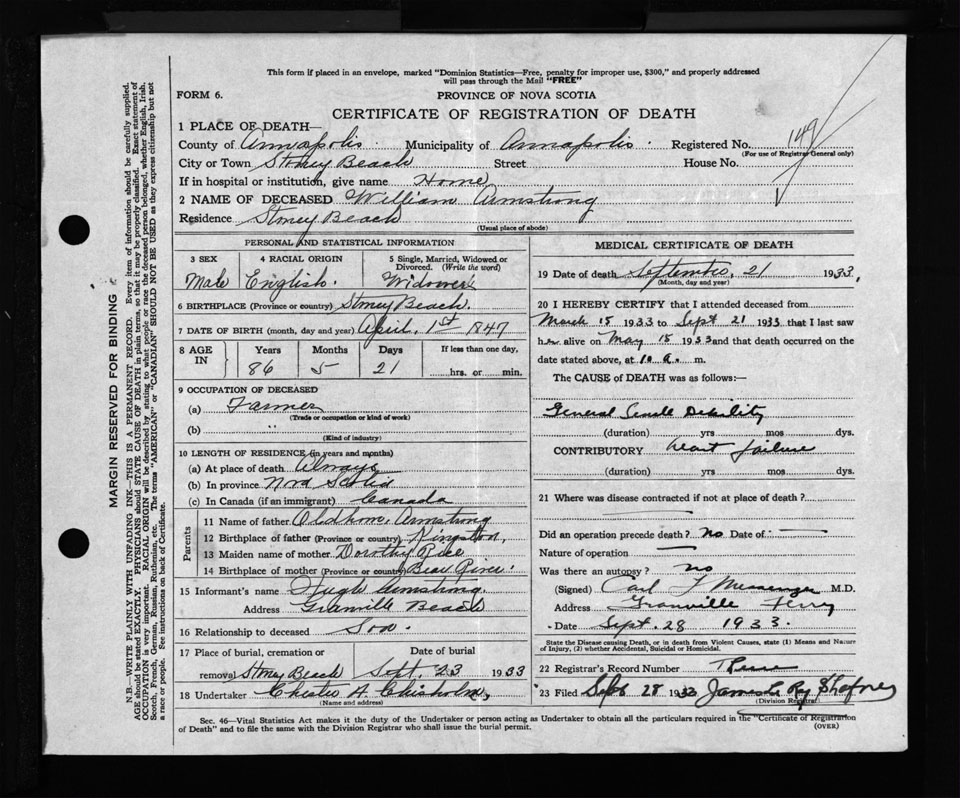 This form if placed in an envelope, marked "Dominion Statistics—Free, penalty for improper use, $300," and properly addressed
will pass through the Mail "FREE"
FORM 6.
PROVINCE OF NOVA SCOTIA
CERTIFICATE OF REGISTRATION OF DEATH
1 PLACE OF DEATH—
County of Annapolis. Municipality of Annapolis. Registered No. 149
(For use of Registrar General only)
City or Town Stoney Beach Street House No.
If in hospital or institution, give name Home
2 NAME OF DECEASED William Armstrong
Residence Stoney Beach
(Usual place of abode)
PERSONAL AND STATISTICAL INFORMATION
3 SEX 4 RACIAL ORIGIN 5 Single, Married, Widowed or
Divorced. (Write the word)
Male English. Widower
6 BIRTHPLACE (Province or country) Stoney Beach.
7 DATE OF BIRTH (month, day and year) April, 1st 1847
8 AGE IN Years Months Days If less than one day,
86 5 21 hrs. or min.
9 OCCUPATION OF DECEASED
(a) Farmer
(Trade or occupation or kind of work)
(b) "
(Kind of industry)
10 LENGTH OF RESIDENCE (in years and months)
(a) At place of death Always
(b) In province Nova Scotia
(c) In Canada (if an immigrant) Canada
Parents
11 Name of father Armstrong
12 Birthplace of father (Province or country) Kingston,
13 Maiden name of mother Dorothy Rice
14 Birthplace of mother (Province or country) Bear River.
15 Informant's name Hugh Armstrong
Address Granville Beach
16 Relationship to deceased Son.
17 Place of burial, cremation or Date of burial
removal Stoney Beach Sept. 23 1933
18 Undertaker Chester A. Chisholm,
(Name and address)
MEDICAL CERTIFICATE OF DEATH
19 Date of death September, 21 1933,
(Month, day and year)
20 I HEREBY CERTIFY that I attended deceased from
March 15 1933 to Sept 21 1933 that I last saw
him alive on May 15 1933 and that death occurred on the
date stated above, at 10 a. m.
The CAUSE of DEATH was as follows:—
General Senile Debility
(duration) yrs mos dys.
CONTRIBUTORY heart failure
(duration) yrs mos dys.
21 Where was disease contracted if not at place of death?
Did an operation precede death? No Date of
Nature of operation
Was there an autopsy? no
(Signed) Carl Messenger M.D.
Address Granville Ferry
Date Sept. 28 1933.
State the Disease causing Death, or in death from Violent Causes, state (1) Means and Nature
of Injury, (2) whether Accidental, Suicidal or Homicidal.
22 Registrar's Record Number
23 Filed Sept 28 1933 James Ray Shafner
(Division Registrar)
Sec. 46—Vital Statistics Act makes it the duty of the Undertaker or person acting as Undertaker to obtain all the particulars required in the "Certificate of Registration
of Death" and to file the same with the Division Registrar who shall issue the burial permit.
(OVER)
MARGIN RESERVED FOR BINDING
N.B.—WRITE PLAINLY WITH UNFADING INK—THIS IS A PERMANENT RECORD. Every item of information should be carefully supplied.
AGE should be stated EXACTLY. PHYSICIANS should STATE CAUSE OF DEATH in plain terms, so that it may be properly classified. Exact statement of
OCCUPATION is very important. RACIAL ORIGIN will be described by stating to what people or race the deceased person belonged, whether English, Irish,
Scotch, French, German, Russian, Ruthenian, etc. The terms "AMERICAN" or "CANADIAN" SHOULD NOT BE USED as they express citizenship but not
a race or people. See instructions on back of Certificate.